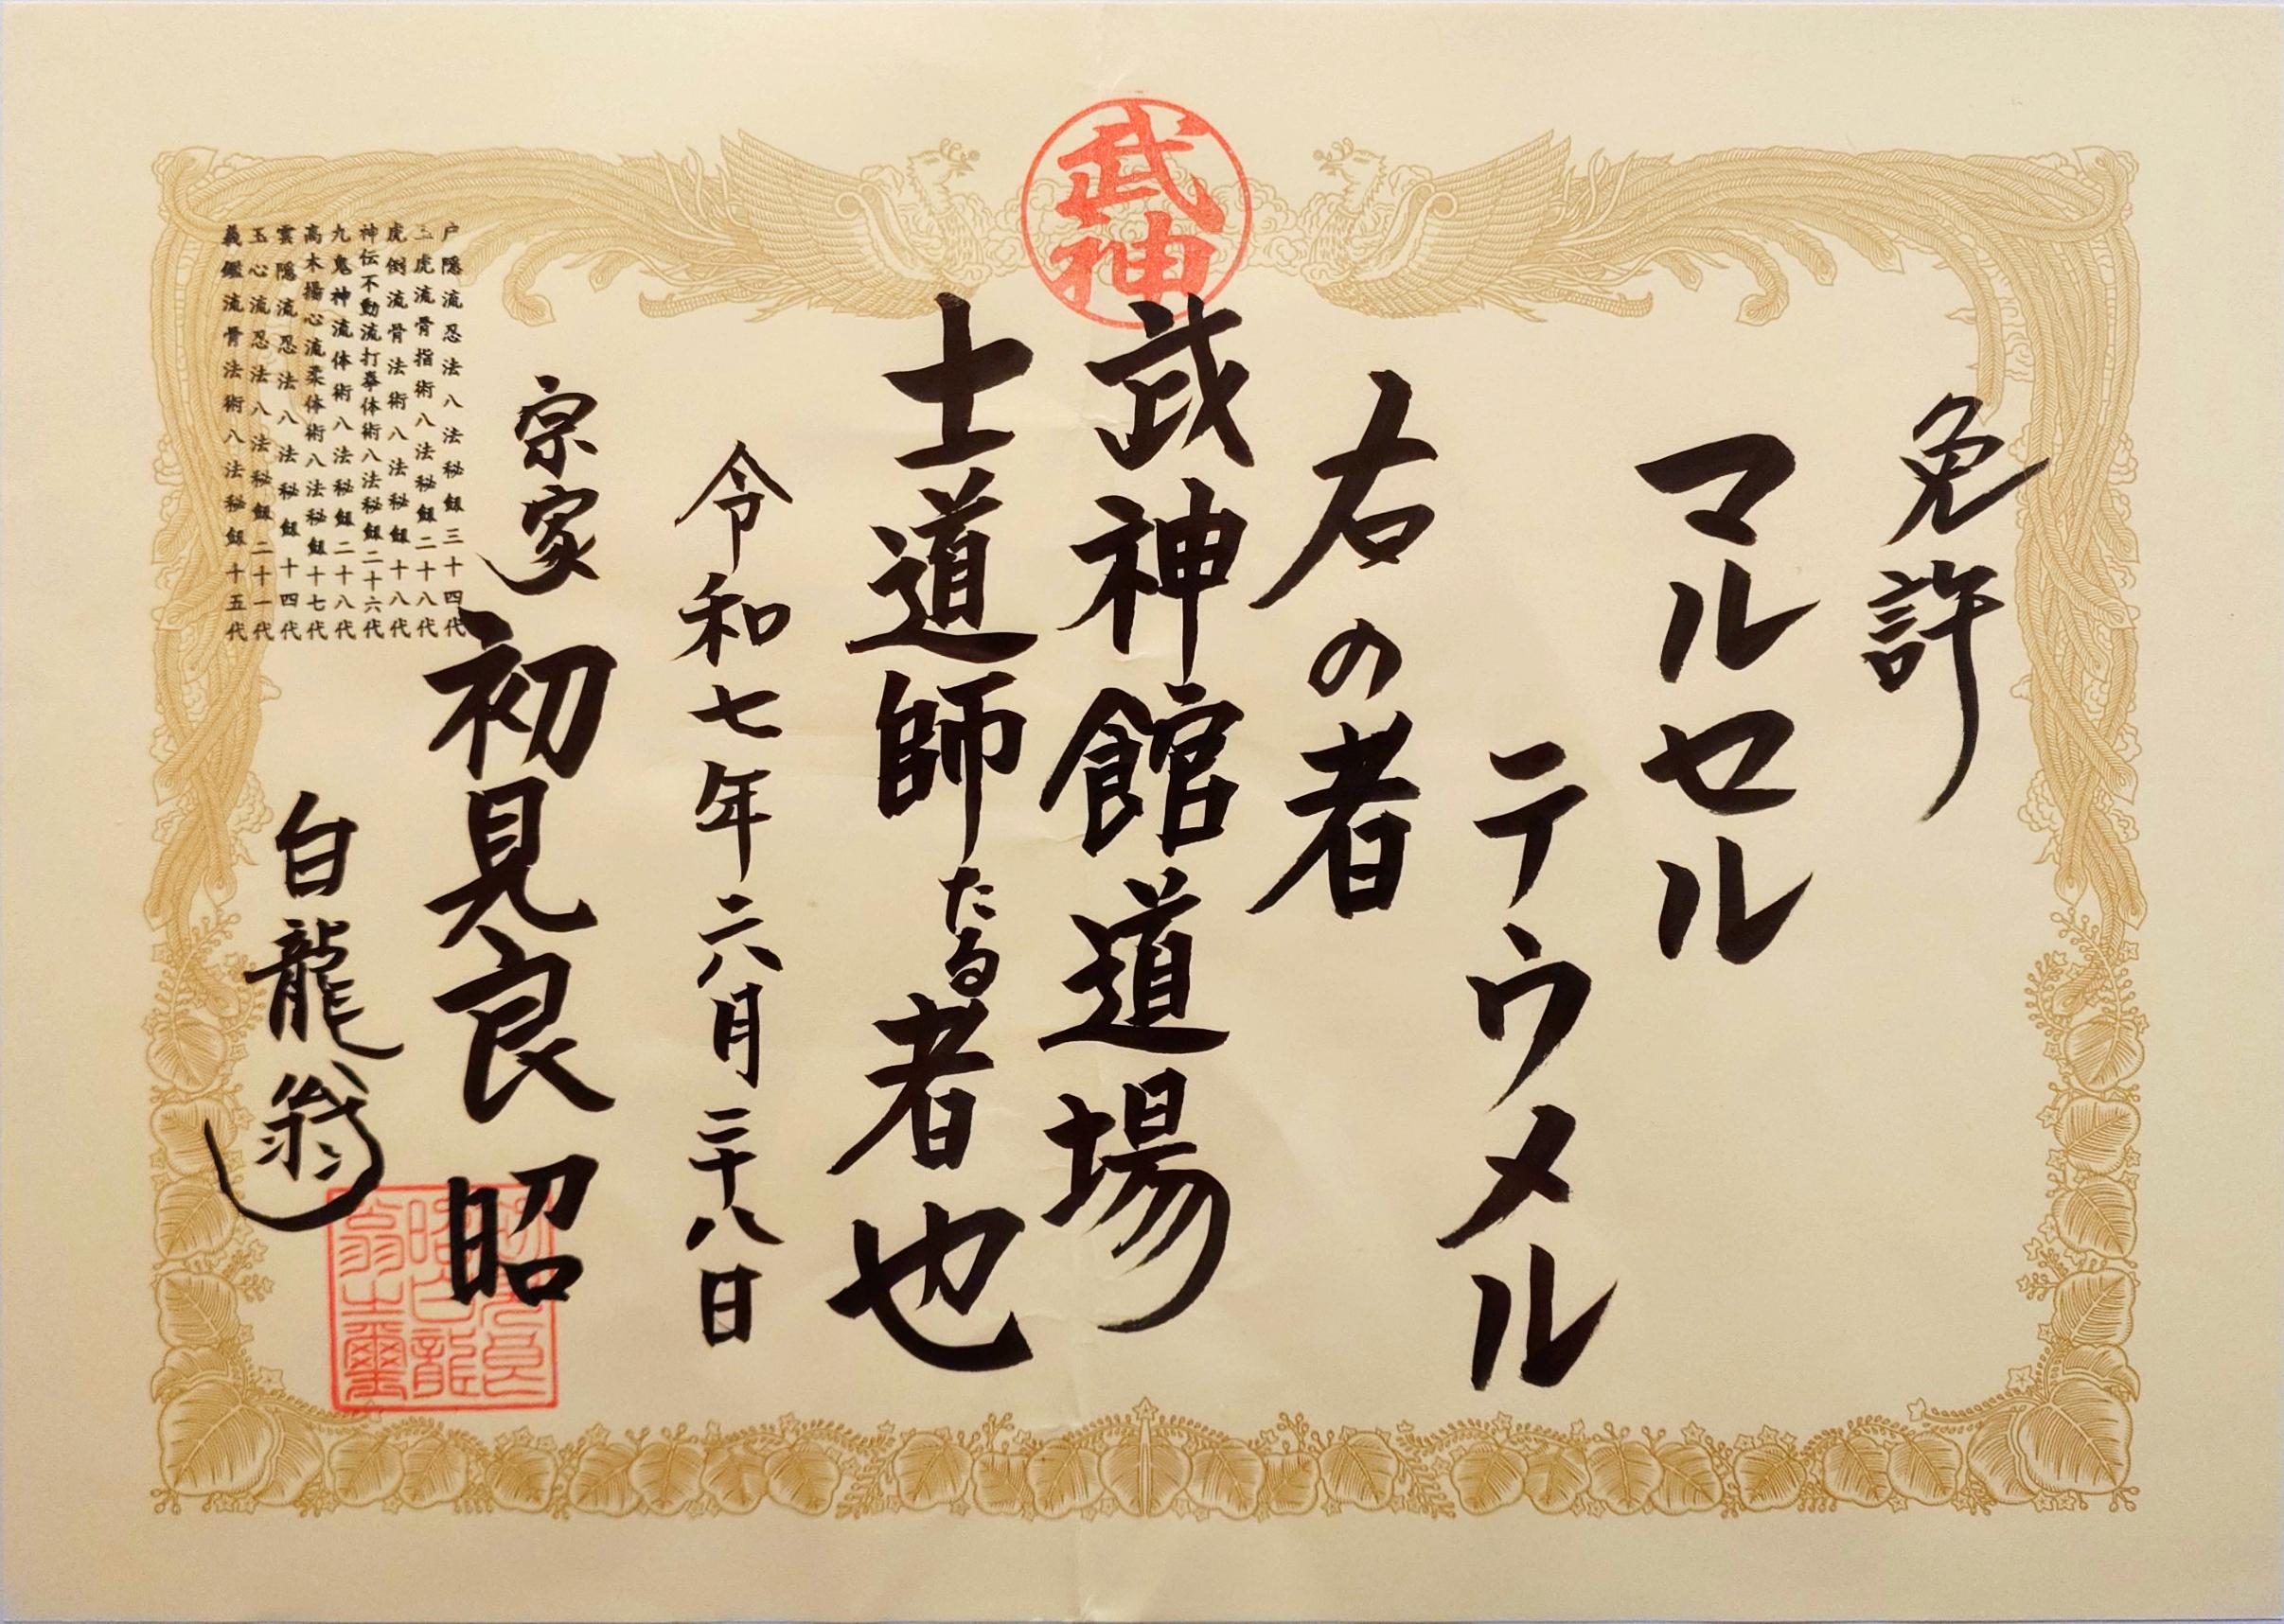 武神
免許
マルセル
テウメル
右の者
武神館道場
士道師たる者也
令和七年六月二十八日
宗家 初見良昭
白龍翁
戸隠流忍法八法秘剱三十四代
玉虎流骨指術八法秘剱二十八代
虎倒流骨法術八法秘剱十八代
神伝不動流打拳体術八法秘剱二十六代
九鬼神流体術八法秘剱二十八代
高木揚心流柔体術八法秘剱十七代
雲隠流忍法八法秘剱十四代
玉心流忍法八法秘剱二十一代
義鑑流骨法術八法秘剱十五代